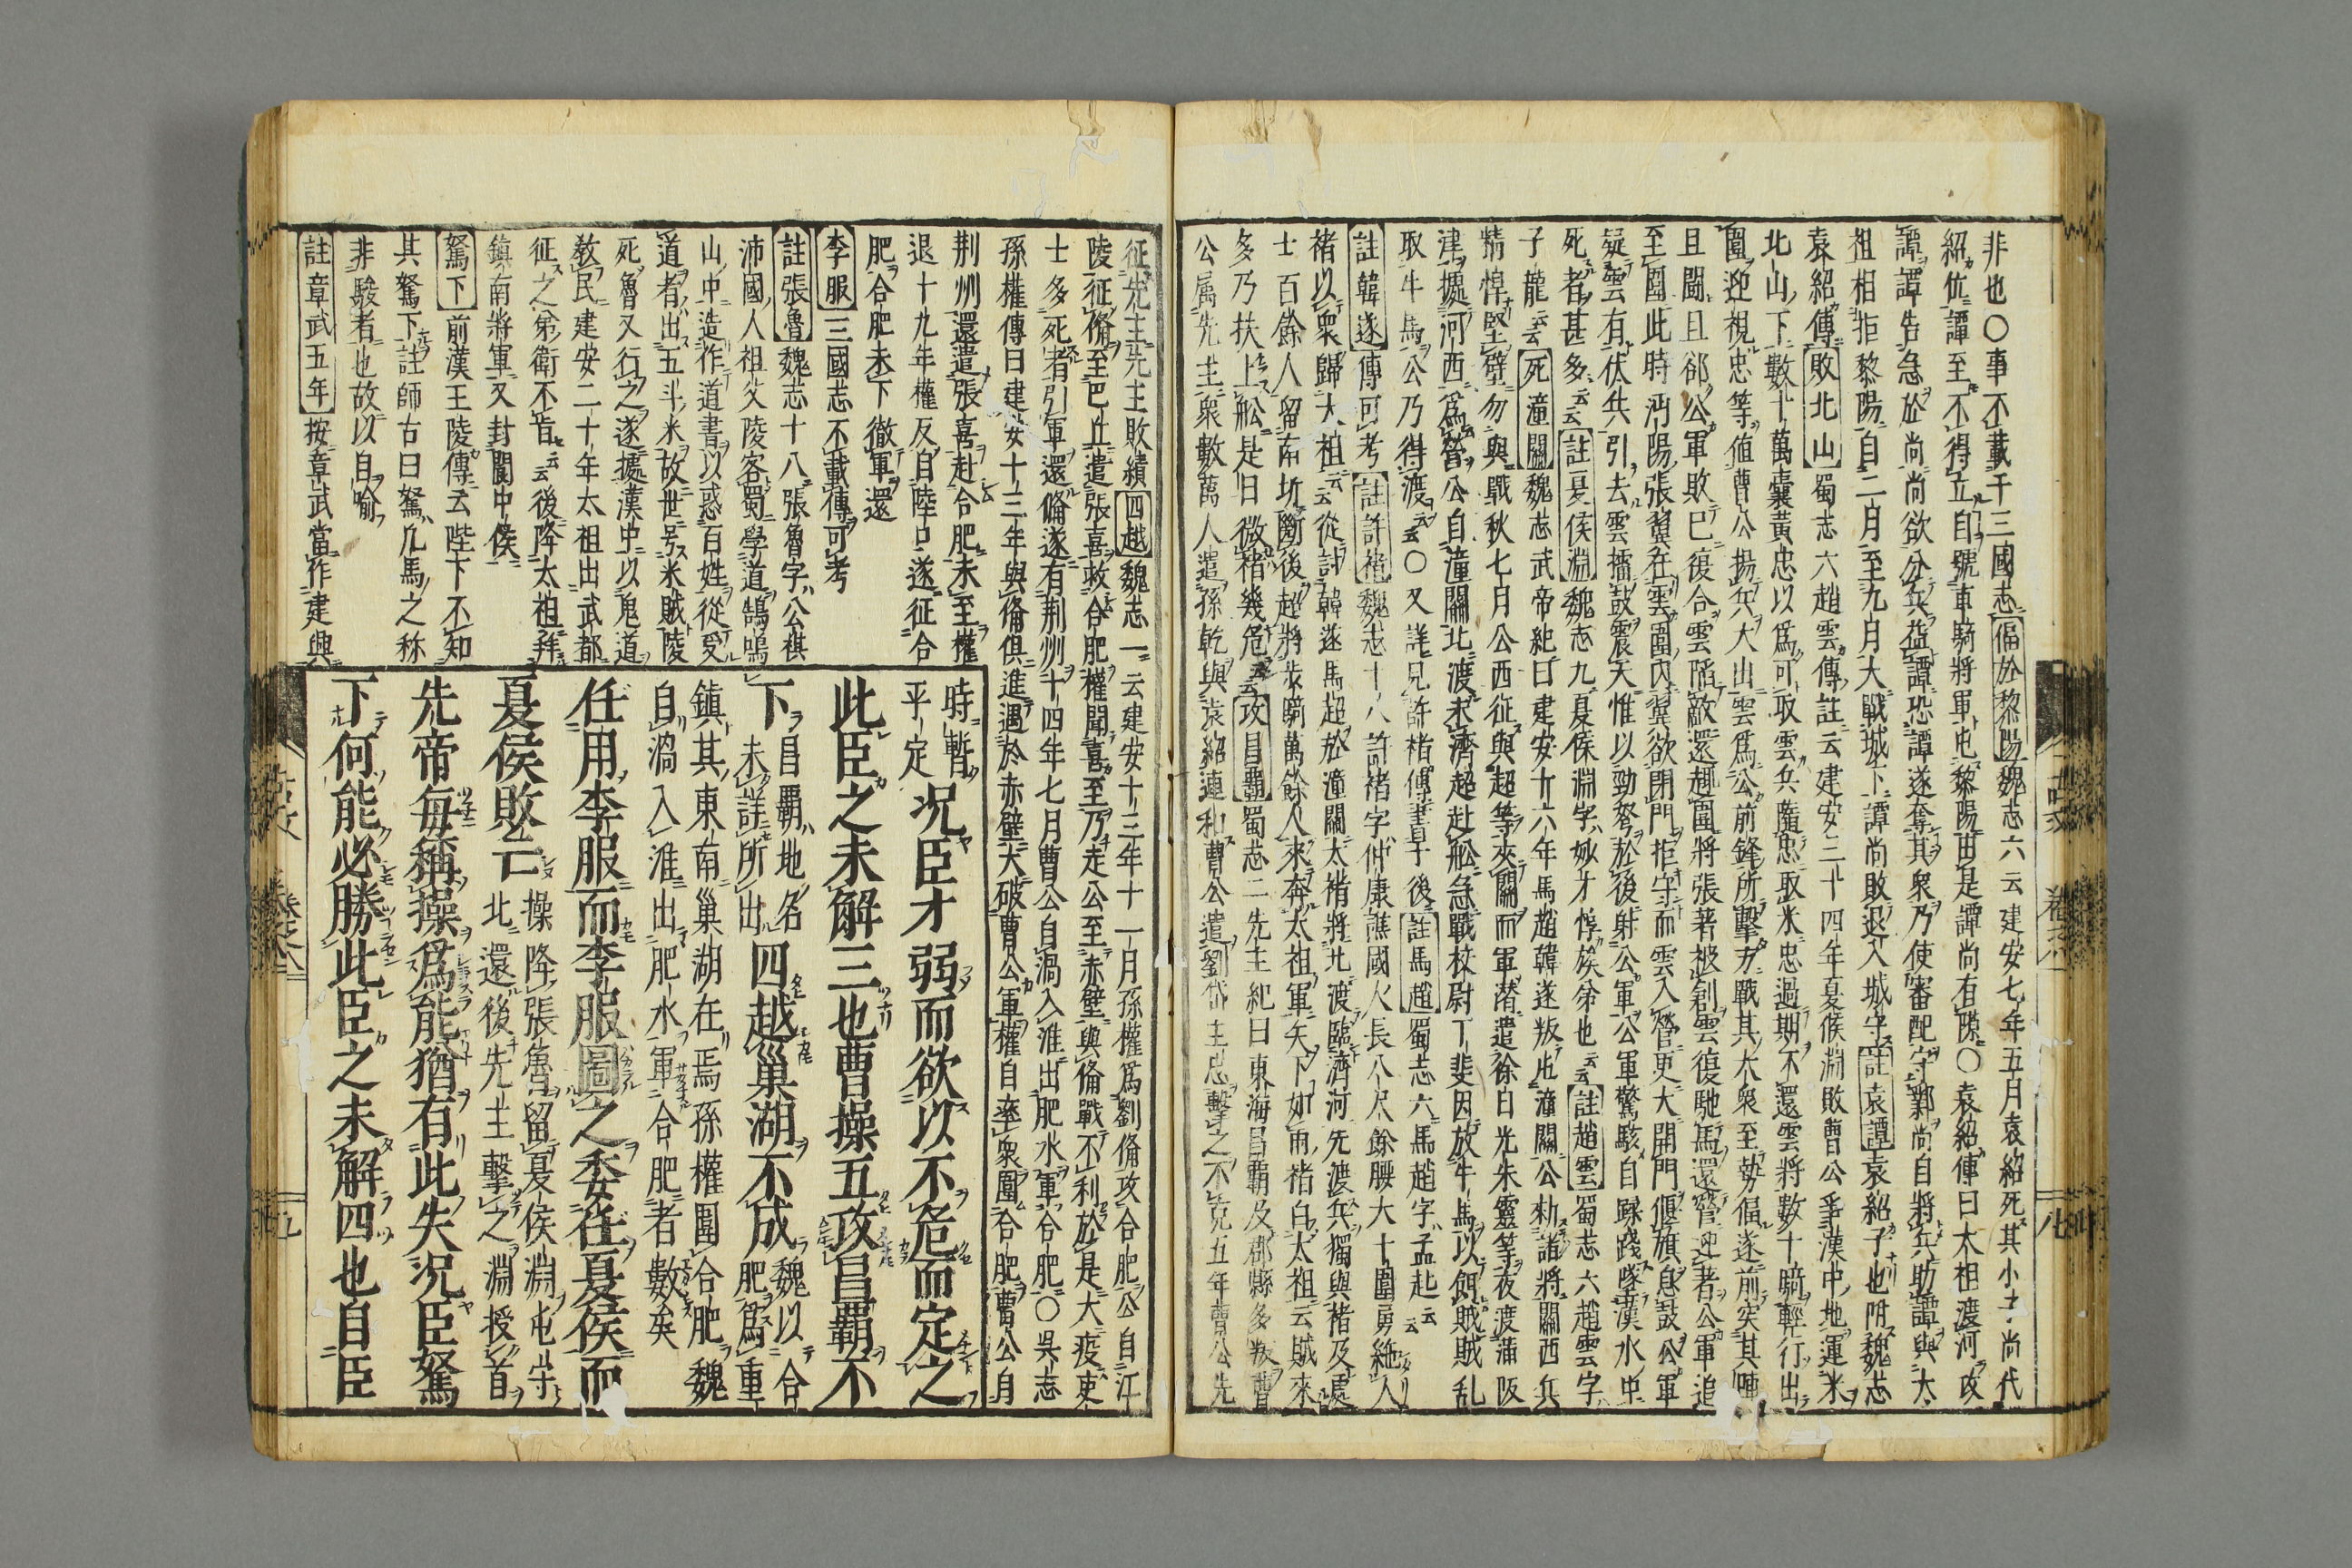 非也〇事不載于三國志偪於黎陽魏志六云建安七年五月袁紹死其小子尚代
紹位譚至不得立自號車騎將軍屯黎陽由是譚尚有隙〇袁紹傳曰太祖渡河攻
譚譚告急於尚尚欲分兵益譚恐譚遂奪其衆乃使審配守鄴尚自將兵助譚與太
祖相拒黎陽自二月至九月大戰城下譚尚敗退入城守註袁譚袁紹子也附魏志
袁紹傳敗北山蜀志六趙雲傳註云建安二十四年夏侯淵敗曹公爭漢中地運米
北山下數十萬囊黃忠以爲可取雲兵隨忠取米忠過期不還雲將數十騎輕行出
圍迎視忠等值曹公揚兵大出雲爲公前鋒所擊方戰其大衆至勢偪遂前突其陣
且鬪且郤公軍敗已復合雲陷敵還趣圍將張著被創雲復馳馬還營迎著公軍追
至圍此時沔陽張翼在雲圍內翼欲閉門拒守而雲入營更大開門偃旗息鼓公軍
疑雲有伏兵引去雲擂鼓震天惟以勁弩於後射公軍公軍驚駭自蹂踐墮漢水中
死者甚多云云註夏侯淵魏志九夏侯淵字妙才惇族弟也云云註趙雲蜀志六趙雲字
子龍云云死潼關魏志武帝紀曰建安十六年馬超韓遂叛屯潼關公勑諸將關西兵
精悍堅壁勿與戰秋七月公西征與超等夾關而軍潛遣徐日光朱靈等夜渡蒲阪
津據河西爲營公自潼關北渡未濟超赴舩急戰校尉丁斐因放牛馬以餌賊賊乱
取牛馬公乃得渡云云〇又詳見許褚傳書早後註馬超蜀志六馬超字孟起云云
註韓遂傳可考註許褚魏志十八許褚字仲康譙國人長八尺餘腰大十圍勇絶人
褚以衆歸太祖云云從討韓遂馬超於潼關太褚將北渡臨濟河先渡兵獨與褚及虎
士百餘人留南坑斷後超將步騎萬餘人來奔太祖軍矢下如雨褚白太祖云賊來
多乃扶上舩是日微褚幾危云云攻昌霸蜀志二先主紀曰東海昌霸及郡縣多叛曹
公属先主衆數萬人遣孫乾與袁紹連和曹公遣劉岱王忠擊之不克五年曹公先
征先主先主敗績四越魏志一云建安十三年十一月孫權爲劉偹攻合肥公自江
陵征偹至巴丘遣張喜救合肥權聞喜至乃走公至赤壁與偹戰不利於是大疫吏
士多死者引軍還偹遂有荆州十四年七月曹公自渦入淮出肥水軍合肥〇吳志
孫權傳曰建安十三年與偹俱進遇於赤壁大破曹公軍權自率衆圍合肥曹公自
荆州還遣張喜赴合肥未至權
退十九年權反自陸口遂征合
肥合肥未下徹軍還
李服三國志不載傳可考
註張魯魏志十八張魯字公祺
沛國人祖父陵客蜀學道鵠鳴
山中造作道書以惑百姓從受
道者出五斗米故世号米賊陵
死魯又行之遂據漢中以鬼道
敎民建安二十年太祖出武都
征之弟衛不旨云云後降太祖拜
鎮南將軍又封閬中侯
駑下前漢王陵傳云陛下不知
其駑下註師古曰駑凡馬之称
非駿者也故以自喩
註章武五年按章武當作建興
時暫
平定況臣才弱而欲以不危而定之
此臣之未解三也曹操五攻昌霸不
下昌霸地名
未詳所出四越巢湖不成魏以合
肥爲重
鎮其東南巢湖在焉孫權圍合肥魏
自渦入淮出肥水軍合肥者數矣
任用李服而李服圖之委任夏侯而
夏侯敗亡操降張魯留夏侯淵屯守
北還後先主擊之淵授首
先帝每稱操爲能猶有此失況臣駑
下何能必勝此臣之未解四也自臣